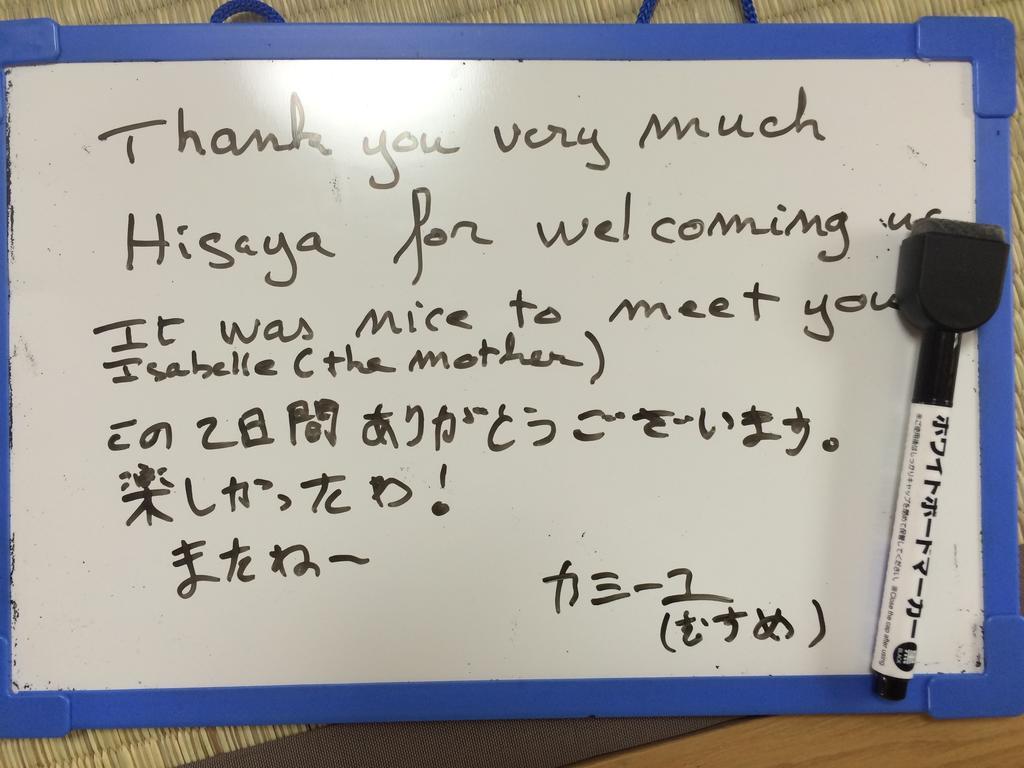 Thank you very much
Hisaya for welcoming us
It was nice to meet you
Isabelle (the mother)
この2日間ありがとうございます。
楽しかったわ!
またねー
カミーユ
(むすめ)
ホワイトボードマーカー
※Close the cap after using